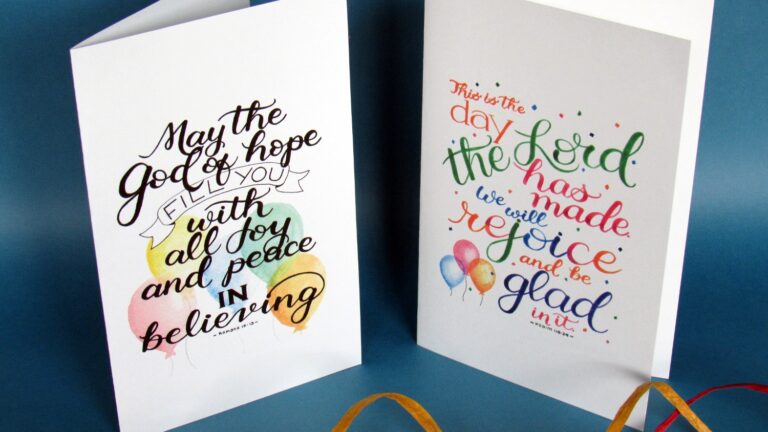 May the
God of hope
FILL YOU
with
all joy
and peace
IN
believing
- ROMANS 15:13 -
This is the
day
the Lord
has
made.
We will
rejoice
and be
glad
in it.
- PSALM 118:24 -